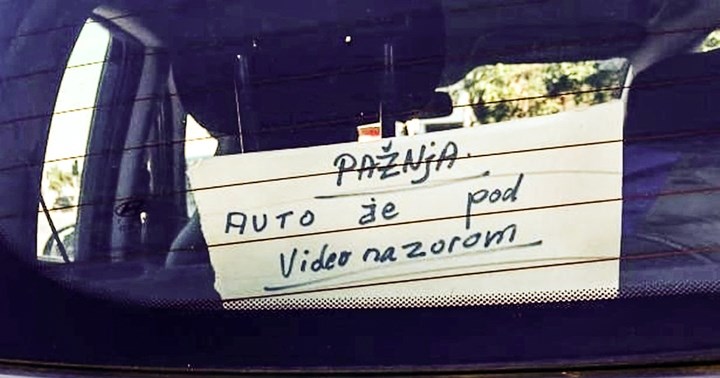 PAŽNjA.
AUTO je pod
Video nazorom